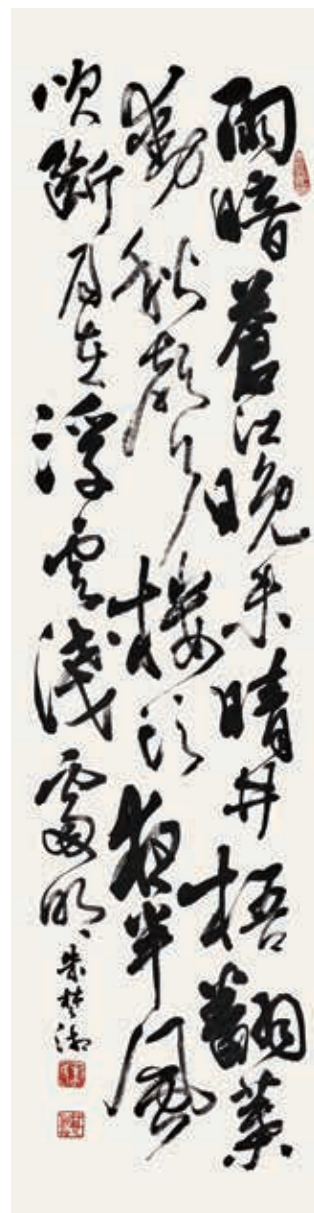 雨暗蒼江晚未晴井梧翻葉
動秋聲樓頭夜半風
吹斷月在浮雲淺處明